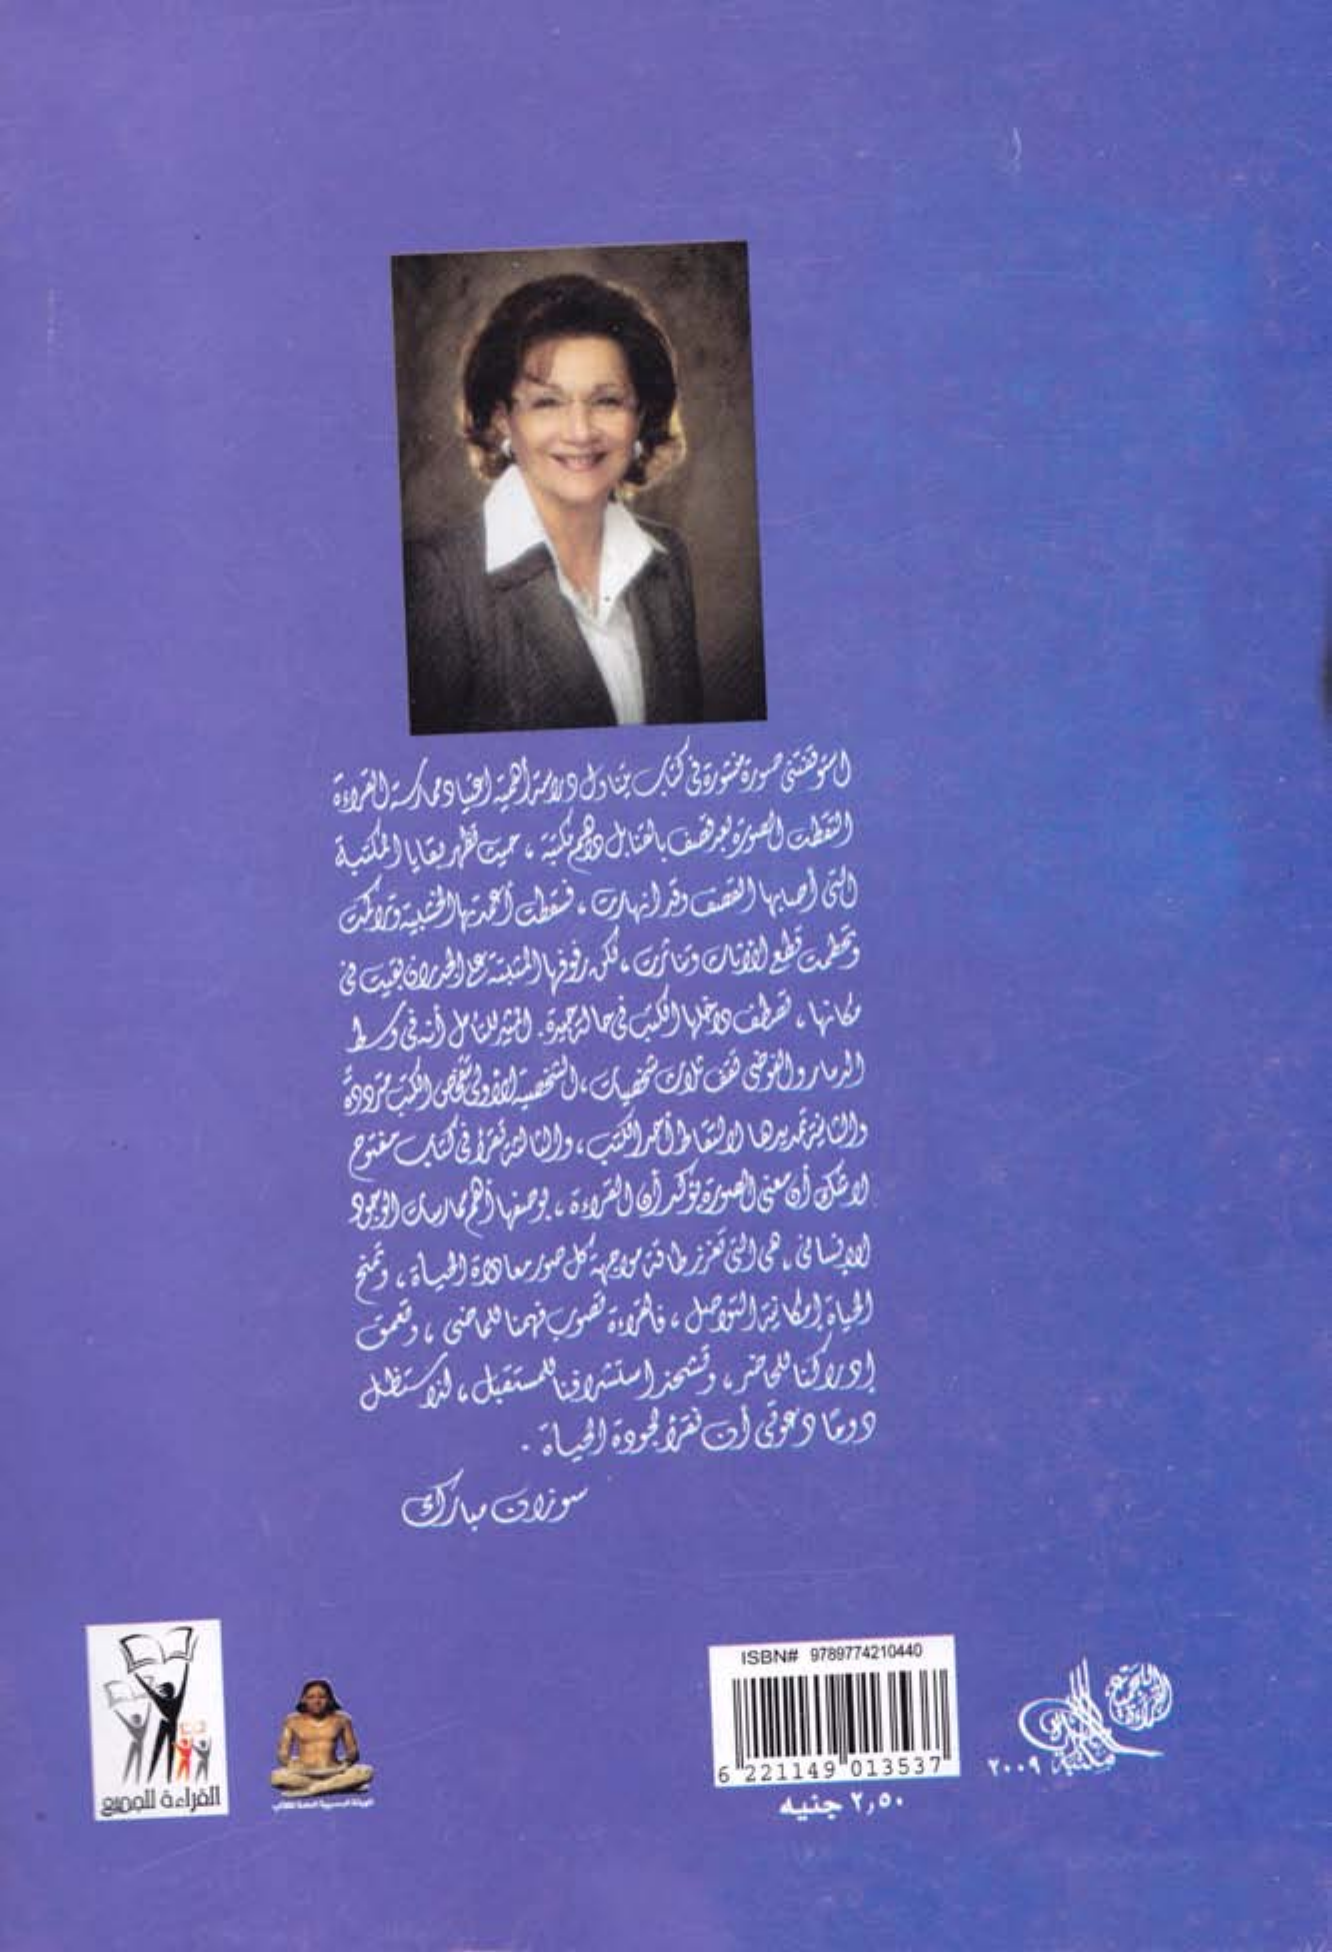 استوقفتني صورة منشورة في كتاب يتناول دراسة أهمية اعتياد ممارسة القراءة
التقطت الصورة بعد قصف بالقنابل داهم مكتبة ، حيث تظهر بقايا المكتبة
التى أصابها القصف وقد انهارت ، فسقطت أعمدتها الخشبية وتراكمت
وتحطمت قطع الأثاث وتناثرت ، لكن رفوفها المثبتة على الجدران بقيت فى
مكانها ، تصطف داخلها الكتب فى حالة جيدة . المثير للتأمل أنه فى وسط
الدمار والفوضى تقف ثلاث شخصيات ، الشخصية الأولى تتفحص الكتب مترددة
والثانية تمد يدها لالتقاط أحد الكتب ، والثالثة تقرأ فى كتاب مفتوح
لا شك أن معنى الصورة يؤكد أن القراءة ، بوصفها أهم ممارسات الوجود
الإنسانى ، هى التى تعزز طاقة مواجهة كل صور معاداة الحياة ، وتمنح
الحياة إمكانية التواصل ، فالقراءة تصوب فهمنا للماضى ، وتعمق
إدراكنا للحاضر ، وتشحذ استشرافنا للمستقبل ، لذا ستظل
دومًا دعوتى أن نقرأ لجودة الحياة .
سوزان مبارك
ISBN# 9789774210440
6 221149 013537
٢,٥٠ جنيه
القراءة للجميع
مكتبة الأسرة
٢٠٠٩
القراءة للجميع